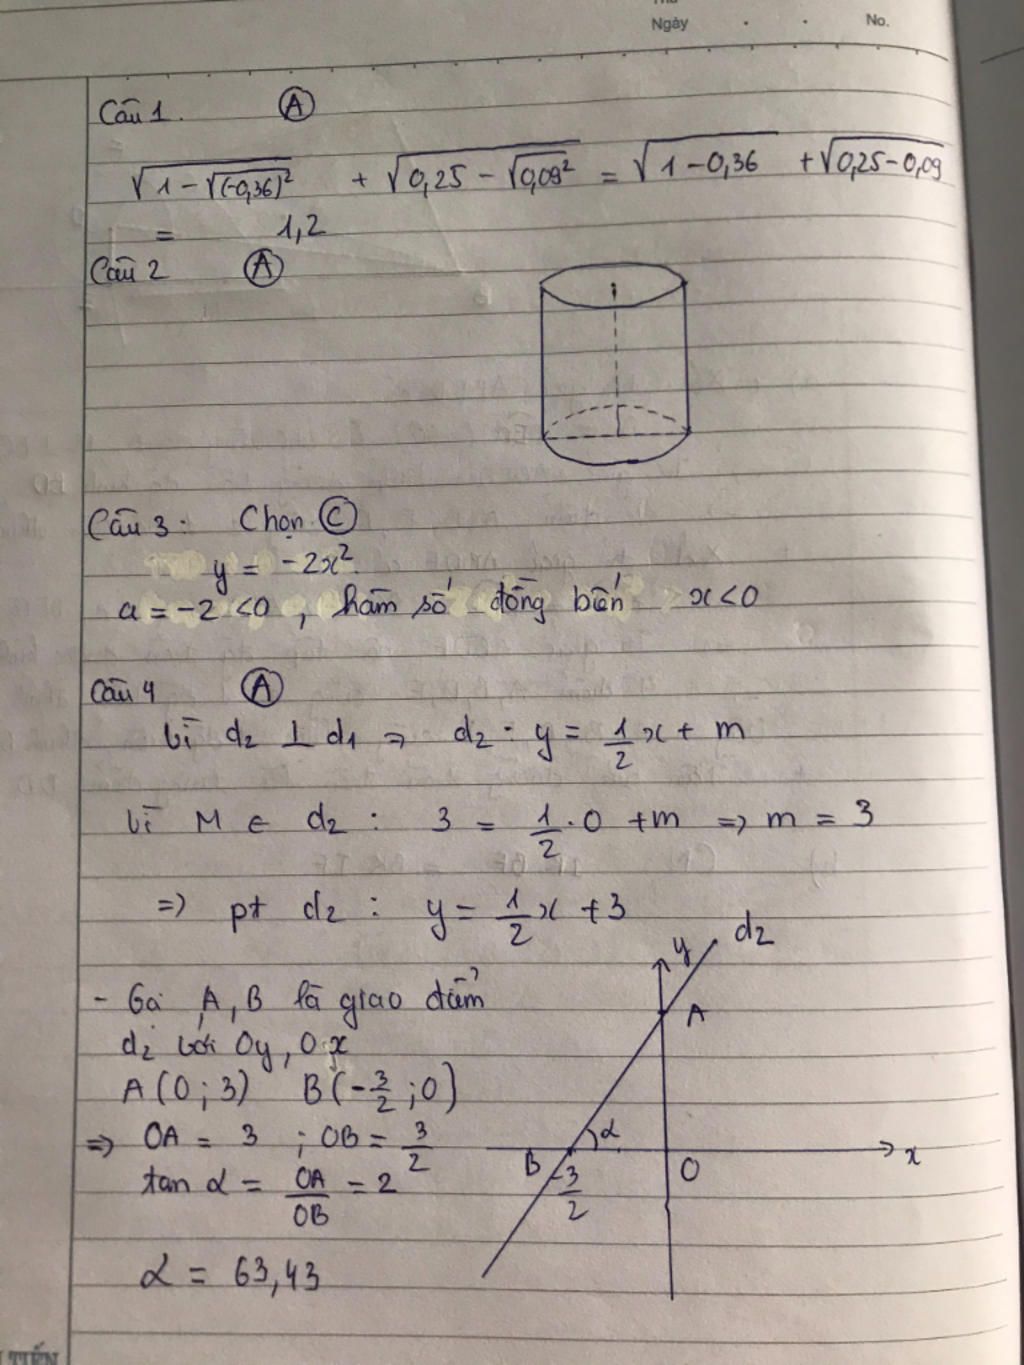 Ngày . . No.
Câu 1. A
√(1 − √(−0,36)²) + √(0,25 − √0,09²) = √(1 − 0,36) + √(0,25 − 0,09)
= 1,2
Câu 2 A
Câu 3: Chọn C
y = −2x².
a = −2 < 0, hàm số đồng biến x < 0
Câu 4 A
Vì d2 ⊥ d1 ⇒ d2: y = 1/2 x + m
Vì M ∈ d2 : 3 = 1/2 . 0 + m ⇒ m = 3
⇒ pt d2 : y = 1/2 x + 3
- Gọi A, B là giao điểm
d2 với Oy, Ox
A(0; 3) B(−3/2; 0)
⇒ OA = 3 ; OB = 3/2
tan α = OA/OB = 2
α = 63,43
y d2
A
α
B O x
−3/2
TIẾN